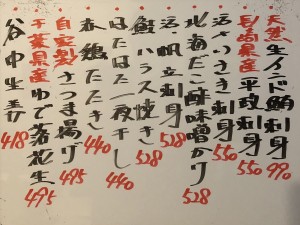 天然生インド鮪刺身 990
長崎県産平政刺身 550
活いさき刺身 550
北海だこ酢味噌かけ 528
活〆帆立刺身 528
鮭ハラス焼き 528
はたはた一夜干し 440
赤鶏たたき 440
自家製さつま揚げ 495
千葉県産ゆで落花生 495
谷中生姜 418